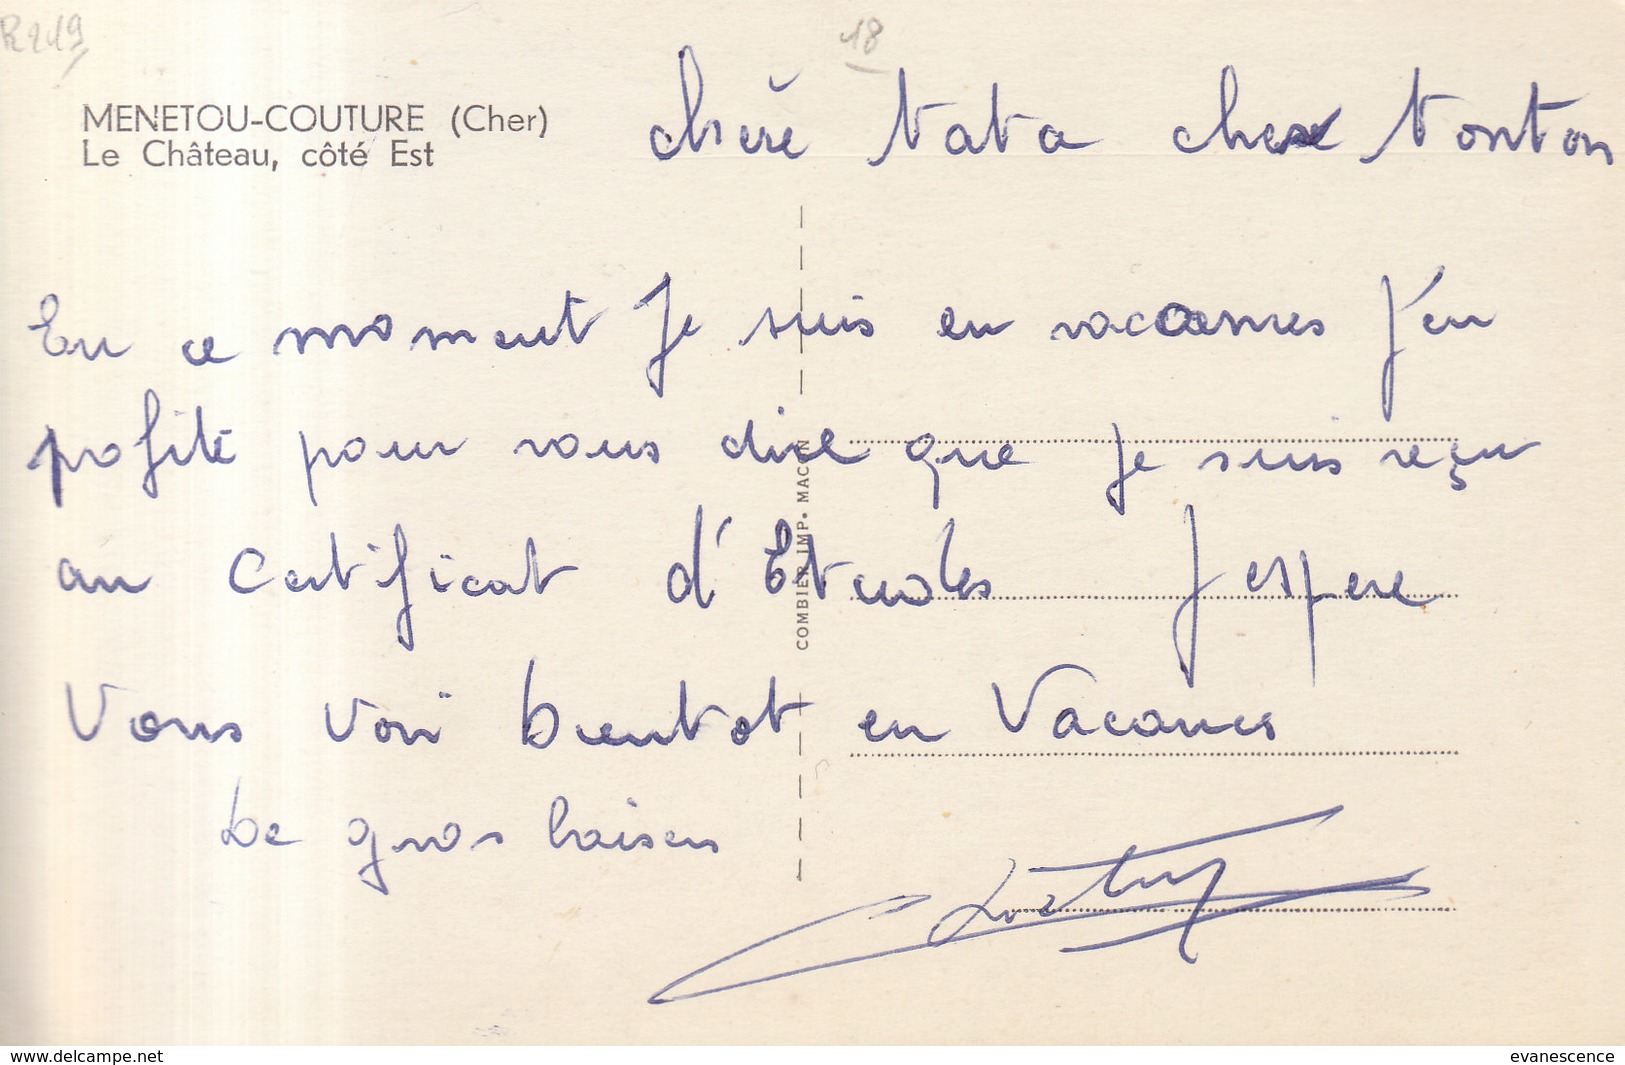 R219
18
MENETOU-COUTURE (Cher)
Le Château, côté Est
chère tata cher tonton
En ce moment Je suis en vacances J'en
profite pour vous dire que Je suis reçu
au Certificat d'Etudes J'espere
Vous Voir bientot en Vacances
De gros baisers
COMBIER IMP. MACON
www.delcampe.net
evanescence